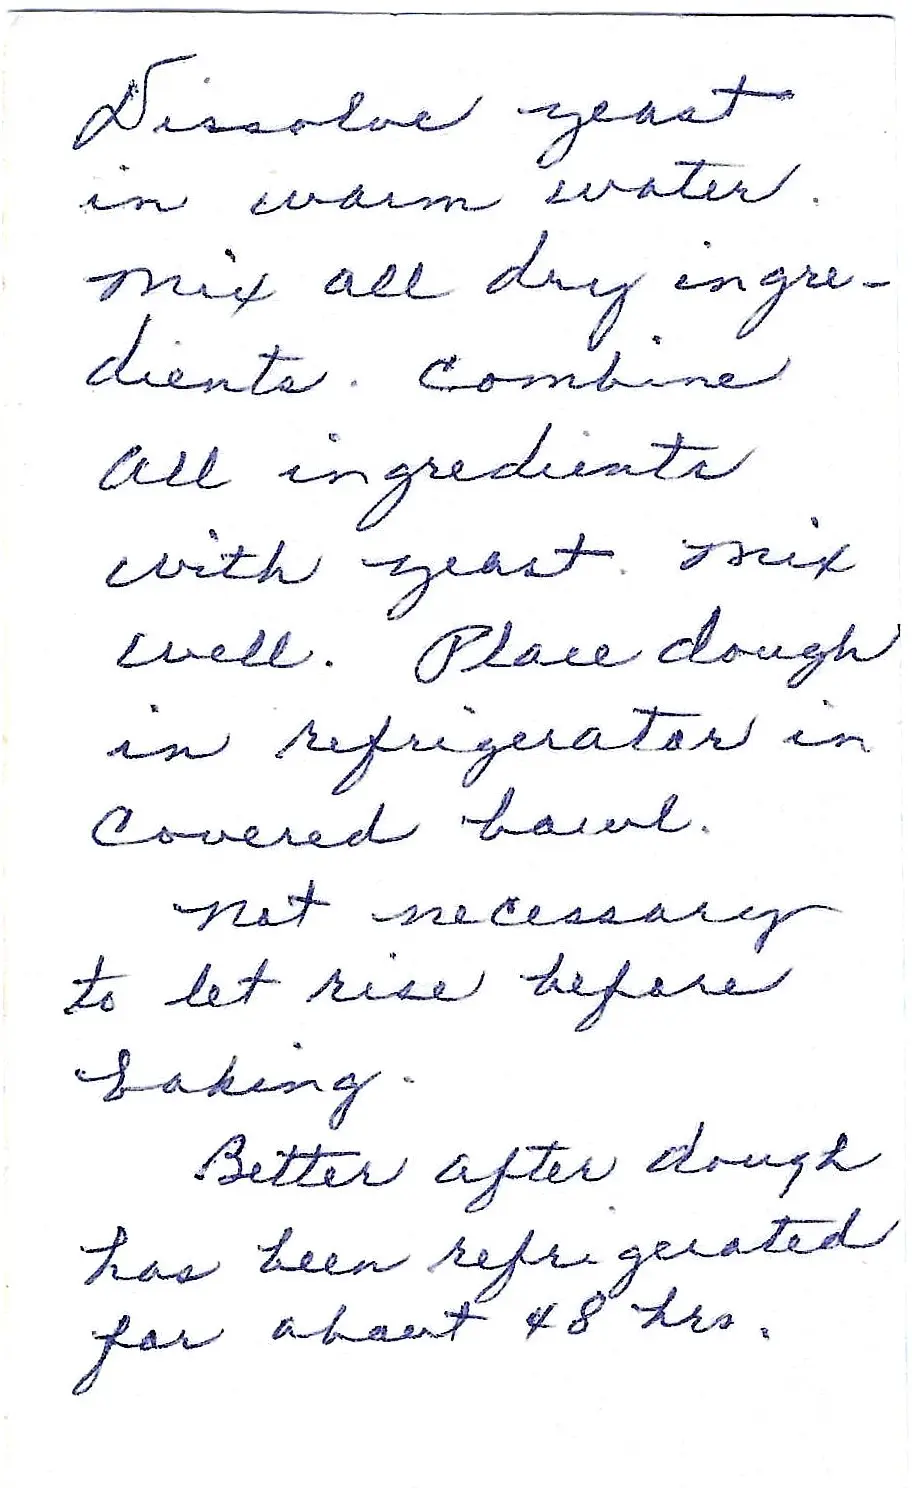 Dissolve yeast
in warm water.
Mix all dry ingre-
dients. Combine
all ingredients
with yeast. Mix
well. Place dough
in refrigerator in
covered bowl.
Not necessary
to let rise before
baking.
Better after dough
has been refrigerated
for about 48 hrs.